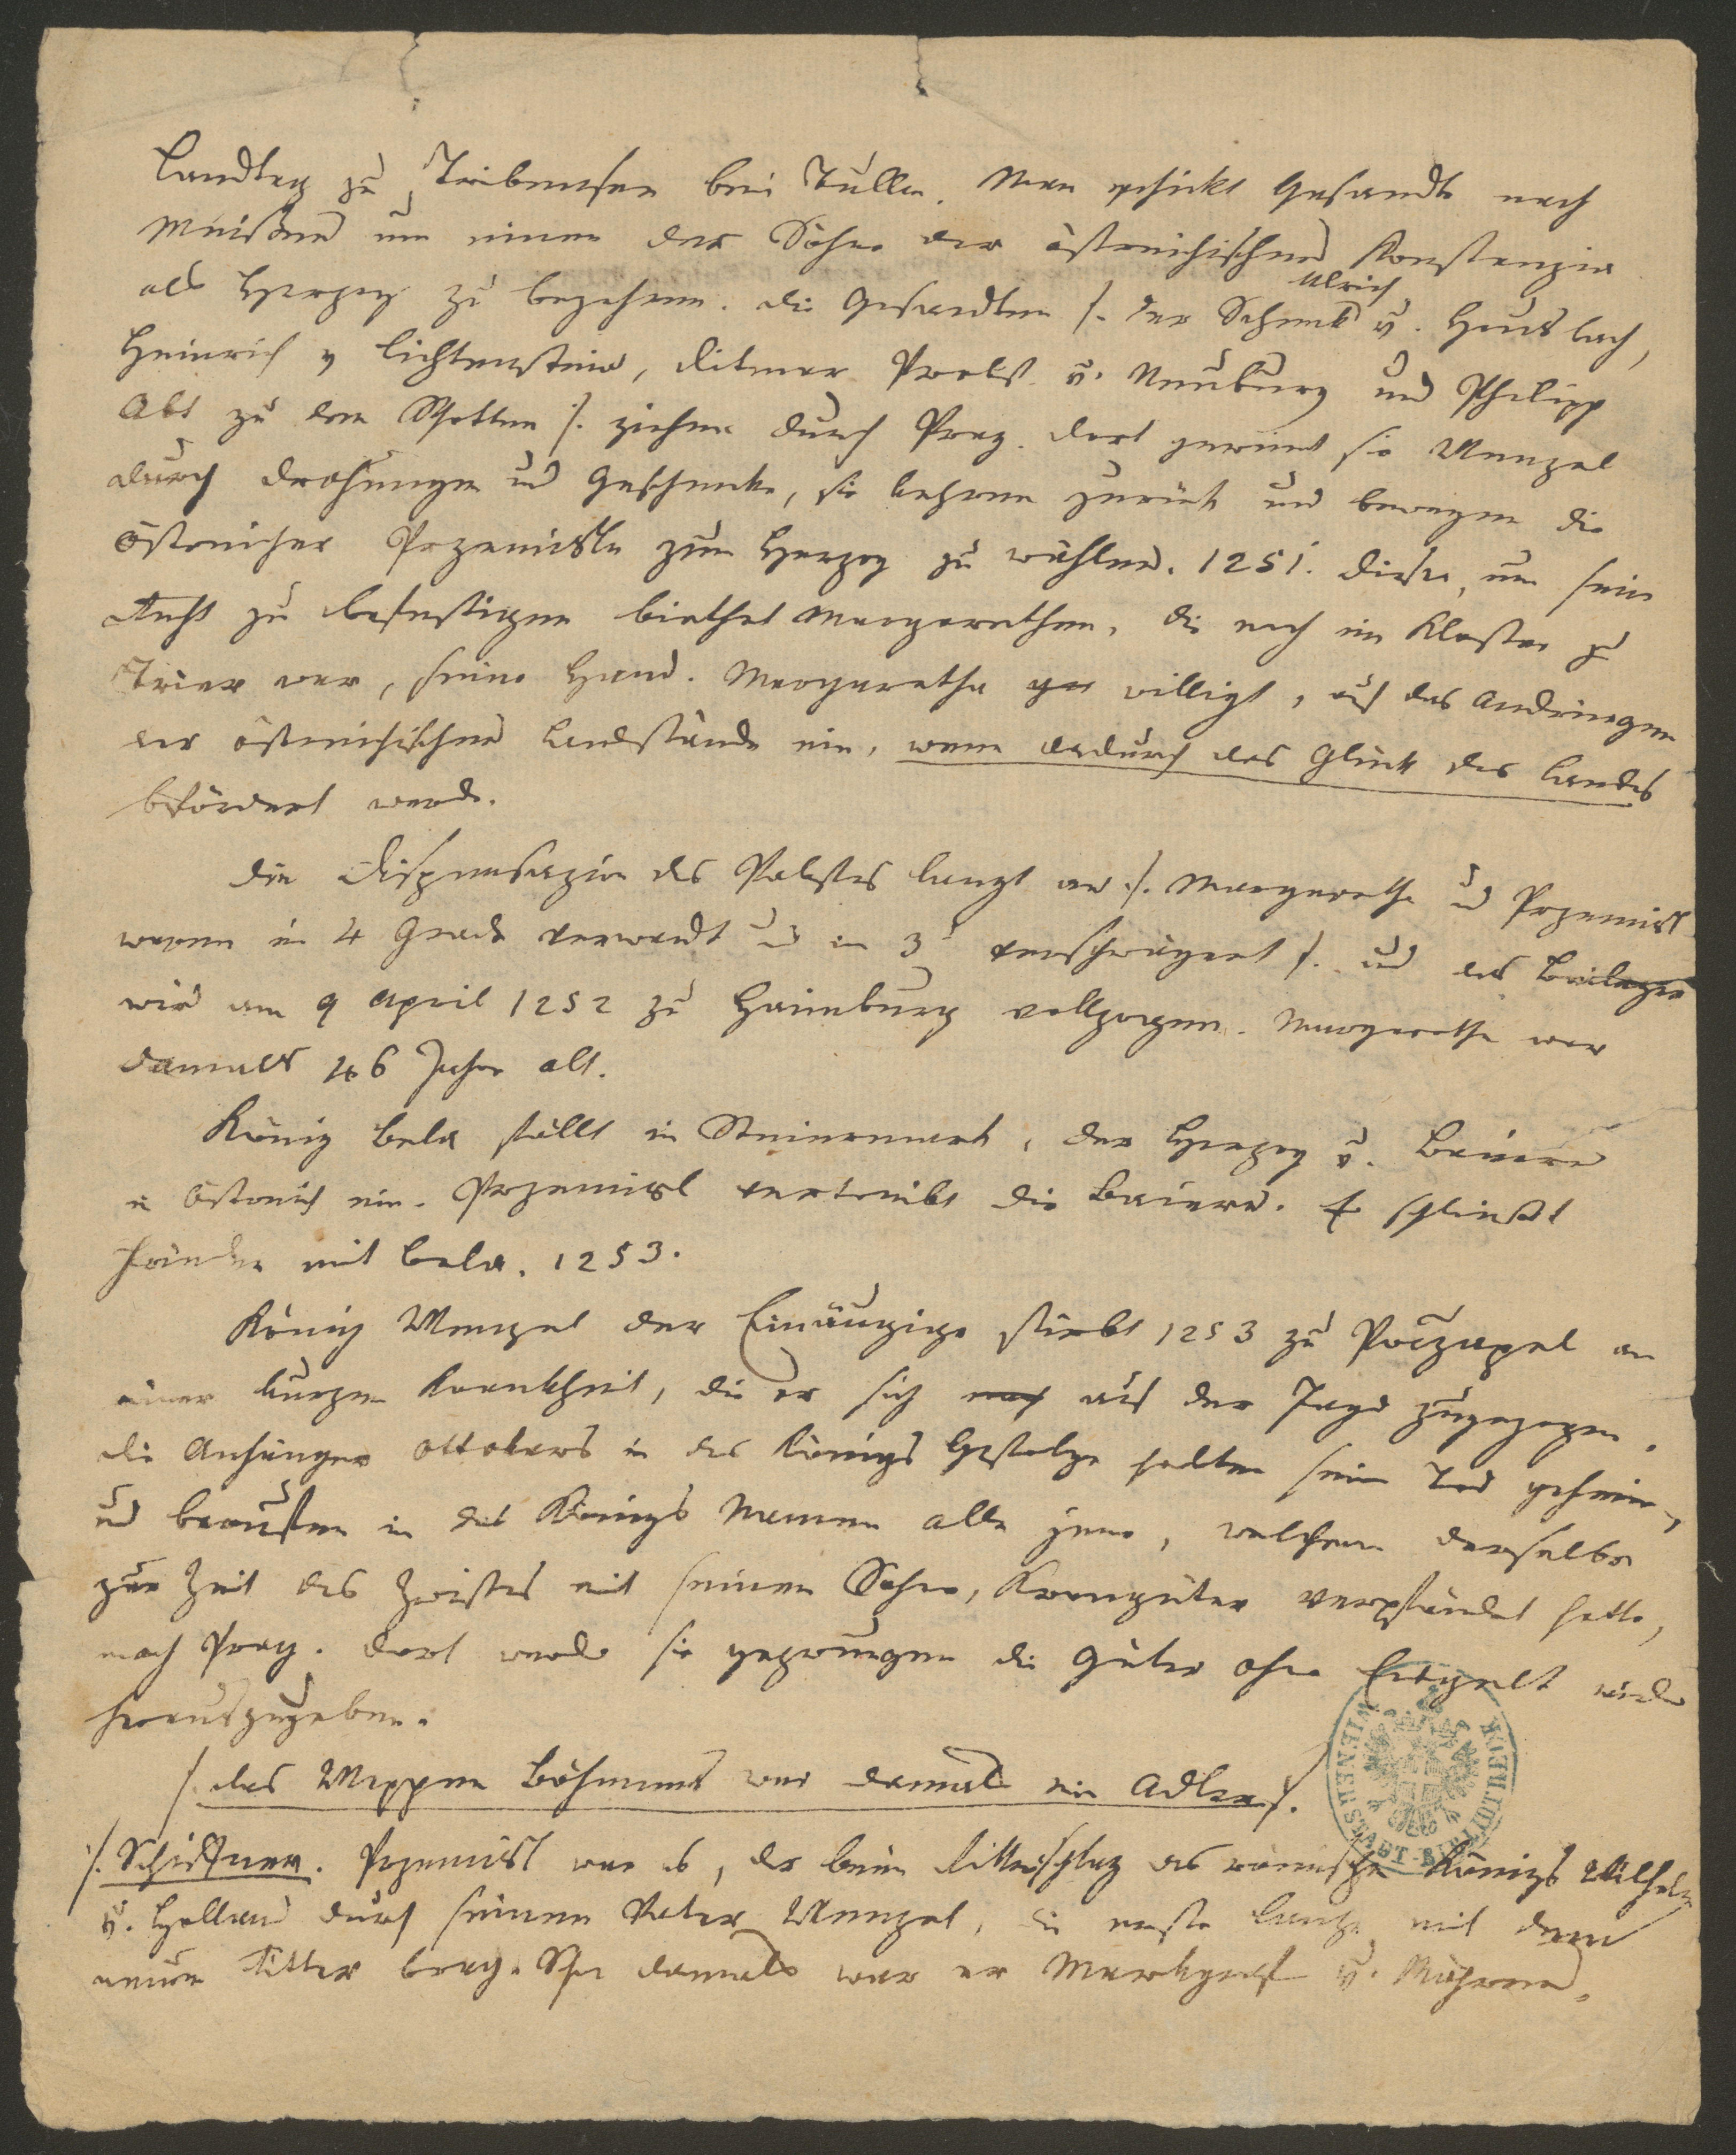 Landtag zu Tribensee bei Tulln. Man schickt Gesandte nach
Meißen um einen der Söhne der östreichischen Konstanzia
als Herzog zu begehren. die Gesandten /. der Schenk Ulrich v. Hausbach,
Heinrich v Lichtenstein, Ditmar Probst v. Neuburg und Philipp
Abt zu den Schotten /. ziehen durch Prag. dort gewinnt sie Wenzel
durch Drohungen und Geschenke, sie kehren zurück und bewegen die
Östreicher Przemisln zum Herzog zu wählen. 1251. dieser, um sein
Recht zu befestigen biethet Margarethen, die noch im Kloster zu
Trier war, seine Hand. Margaretha willigt, auf das Andringen
der östreichischen Landstände ein, wenn dadurch das Glück des Landes
befördert werde.
Die Dispensazion des Pabstes langt an ./. Margarethe und Przemisl
waren im 4 Grade verwandt und im 3 verschwägert /. und das Beilager
wird am 9 April 1252 zu Haimburg vollzogen. Margarethe war
damals 46 Jahre alt.
König Bela fällt in Steiermark, der Herzog v. Baiern
in Östreich ein. Przemisl vertreibt die Baiern. Er schließt
Frieden mit Bela. 1253.
König Wenzel der Einäugige stirbt 1253 zu Poczapel an
einer kurzen Krankheit, die er sich auf der Jagd zugezogen.
die Anhänger Ottokars in des Königs Gefolge halten seinen Tod geheim,
und berufen in des Königs Namen alle jene, welchen derselbe
zur Zeit des Zwistes mit seinem Sohne, Krongüter verpfändet hatte,
nach Prag. dort werden sie gezwungen die Güter ohne Entgelt wieder
herauszugeben.
/. das Wappen Böhmens war damals ein Adler /.
/. Schiffner. Przemisl war es, der beim Ritterschlag des römischen Königs Wilhelm
v. Holland durch seinen Vater Wenzel, die erste Lanze mit dem
neuen Ritter brach. Schon damals war er Markgraf v. Mähren.
WIENER STADT-BIBLIOTHEK